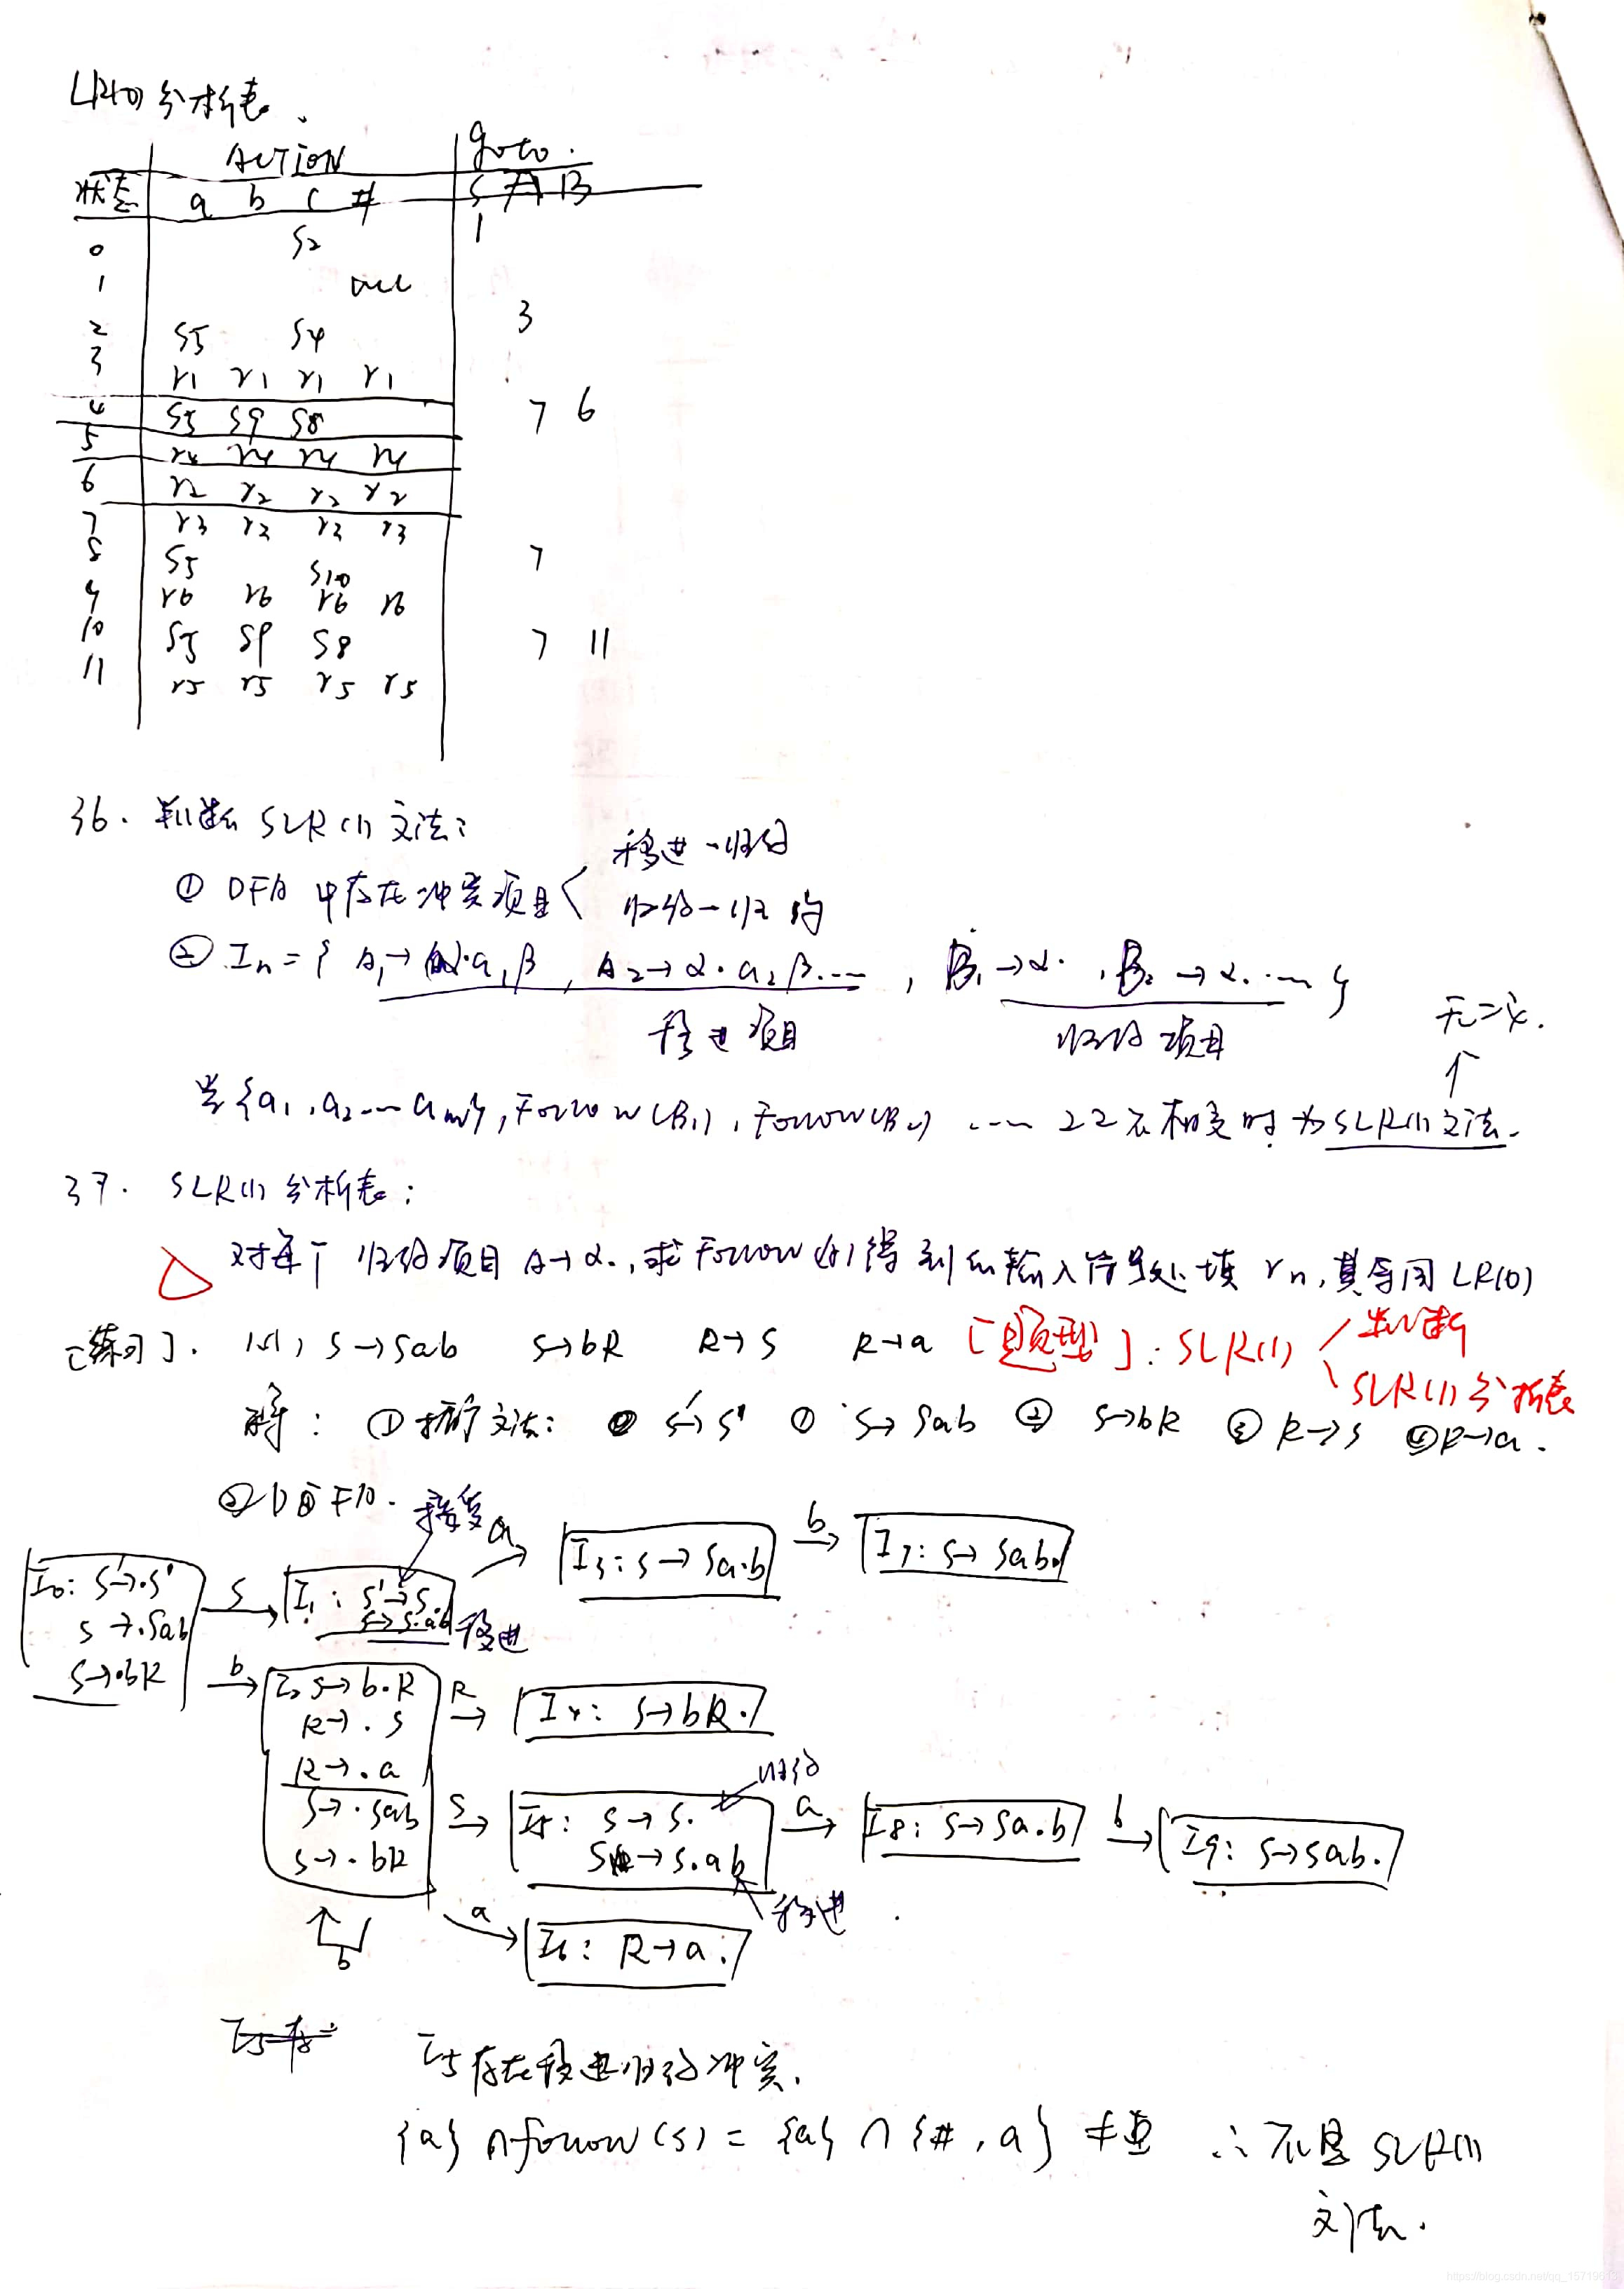 LR(0)分析表、
ACTION goto.
状态 a b c # S A B
0 S2 1
1 acc
2 S5 S4 3
3 r1 r1 r1 r1
4 S5 S9 S8 7 6
5 r4 r4 r4 r4
6 r2 r2 r2 r2
7 r3 r3 r3 r3
8 S5 S10 7
9 r6 r6 r6 r6
10 S5 S9 S8 7 11
11 r5 r5 r5 r5
36. 判断SLR(1)文法:
① DFA中存在冲突项目
移进-归约
归约-归约
② In={ A1→α·a1β, A2→α·a2β·····, B1→α·, B2→α.···· }
移进项目 归约项目
无二义.
当{a1,a2···am},Follow(B1),Follow(B2) ···· 22不相交时为SLR(1)文法.
37. SLR(1)分析表:
对每个归约项目A→α.,求Follow(A)得到的输入符号处填rn,其余同LR(0)
[练习]. S→Sab S→bR R→S R→a [题型]: SLR(1) 判断
SLR(1)分析表
解: ①拓广文法: ⓪ S'→S' ① S→Sab ② S→bR ③ R→S ④R→a.
② DFA.
接受
I0: S'→.S'
S→.Sab
S→.bR
S
I1: S'→S.
S→S.ab
移进
a
I3: S→Sa.b
b
I7: S→Sab.
b
I2 S→b.R
R→.S
R→.a
S→.Sab
S→.bR
b
R
I4: S→bR.
S
I5: S→S.
S→S.ab
归约
移进
a
I8: S→Sa.b
b
I9: S→Sab.
a
I6: R→a.
I5存在移进归约冲突.
{a}∩follow(S)={a}∩{#,a}≠Φ ∴不是SLR(1)
文法.